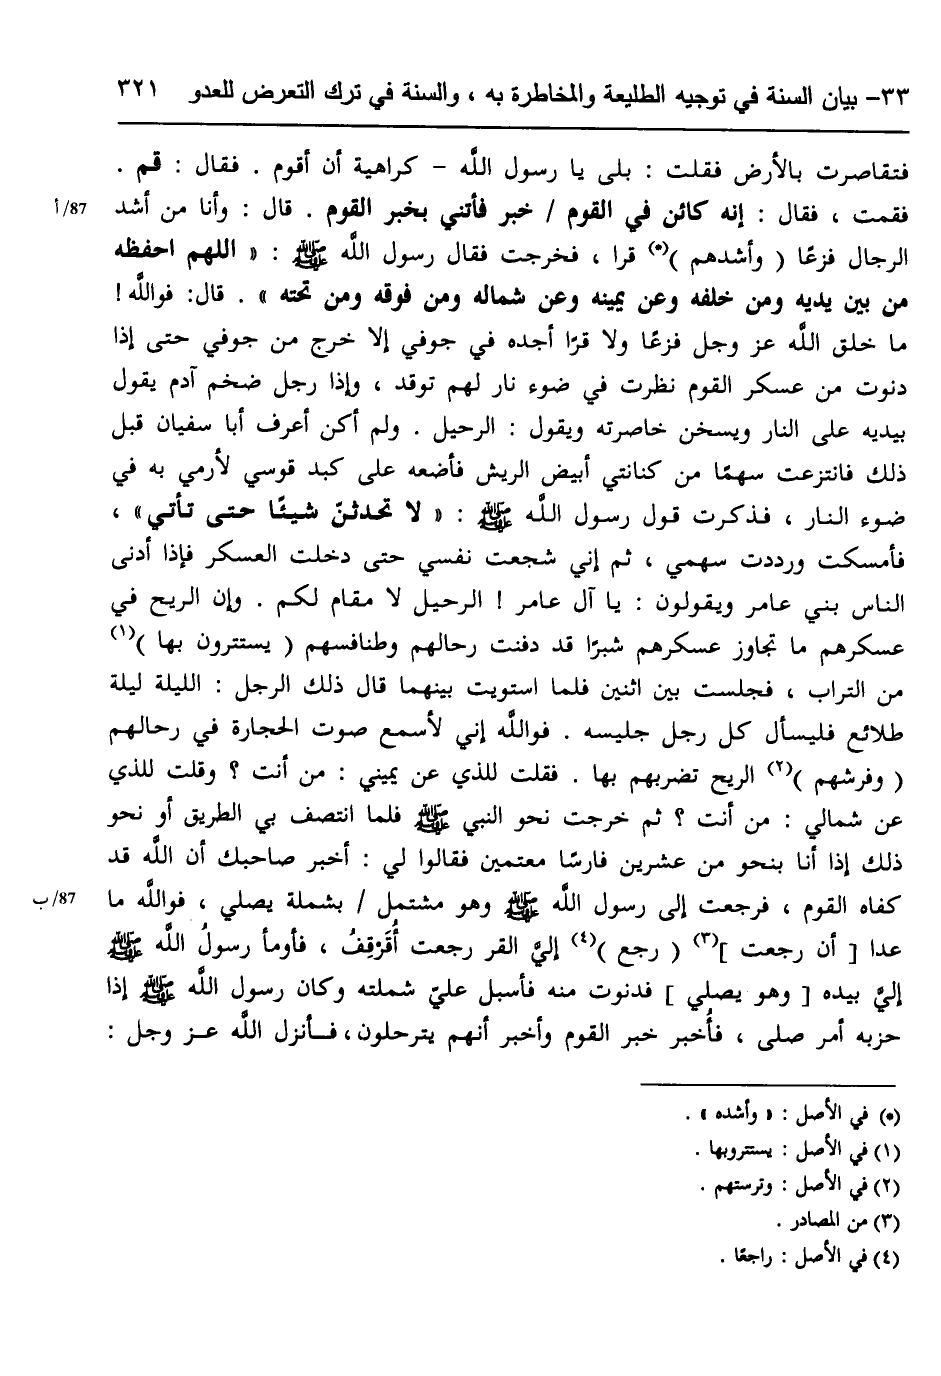 ٣٣- بيان السنة في توجيه الطليعة والمخاطرة به ، والسنة في ترك التعرض للعدو ٣٢١
فتقاصرت بالأرض فقلت : بلى يا رسول اللَّه - كراهية أن أقوم . فقال : قم .
فقمت ، فقال : إنه كائن في القوم / خبر فأتني بخبر القوم . قال : وأنا من أشد 87/أ
الرجال فزعًا ( وأشدهم )(*) قرا ، فخرجت فقال رسول اللَّه ﷺ : « اللهم احفظه
من بين يديه ومن خلفه وعن يمينه وعن شماله ومن فوقه ومن تحته » . قال: فواللَّه!
ما خلق اللَّه عز وجل فزعًا ولا قرًا أجده في جوفي إلا خرج من جوفي حتى إذا
دنوت من عسكر القوم نظرت في ضوء نار لهم توقد ، وإذا رجل ضخم آدم يقول
بيديه على النار ويسخن خاصرته ويقول : الرحيل . ولم أكن أعرف أبا سفيان قبل
ذلك فانتزعت سهمًا من كنانتي أبيض الريش فأضعه على كبد قوسي لأرمي به في
ضوء النار ، فذكرت قول رسول اللَّه ﷺ : « لا تحدثنّ شيئًا حتى تأتي» ،
فأمسكت ورددت سهمي ، ثم إني شجعت نفسي حتى دخلت العسكر فإذا أدنى
الناس بني عامر ويقولون : يا آل عامر ! الرحيل لا مقام لكم . وإن الريح في
عسكرهم ما تجاوز عسكرهم شبرًا قد دفنت رحالهم وطنافسهم ( يستترون بها )(١)
من التراب ، فجلست بين اثنين فلما استويت بينهما قال ذلك الرجل : الليلة ليلة
طلائع فليسأل كل رجل جليسه . فواللَّه إني لأسمع صوت الحجارة في رحالهم
( وفرشهم )(٢) الريح تضربهم بها . فقلت للذي عن يميني : من أنت ؟ وقلت للذي
عن شمالي : من أنت ؟ ثم خرجت نحو النبي ﷺ فلما انتصف بي الطريق أو نحو
ذلك إذا أنا بنحو من عشرين فارسًا معتمين فقالوا لي : أخبر صاحبك أن اللَّه قد
كفاه القوم ، فرجعت إلى رسول اللَّه ﷺ وهو مشتمل / بشملة يصلي ، فواللَّه ما 87/ب
عدا [ أن رجعت ](٣) ( رجع )(٤) إليَّ القر رجعت أُقَرْقِفُ ، فأومأ رسولُ اللَّه ﷺ
إليَّ بيده [ وهو يصلي ] فدنوت منه فأسبل عليّ شملته وكان رسول اللَّه ﷺ إذا
حزبه أمر صلى ، فأُخبر خبر القوم وأخبر أنهم يترحلون، فأنزل اللَّه عز وجل :
(*) في الأصل : « وأشده » .
(١) في الأصل : يستتروبها .
(٢) في الأصل : وترستهم .
(٣) من المصادر .
(٤) في الأصل : راجعًا .